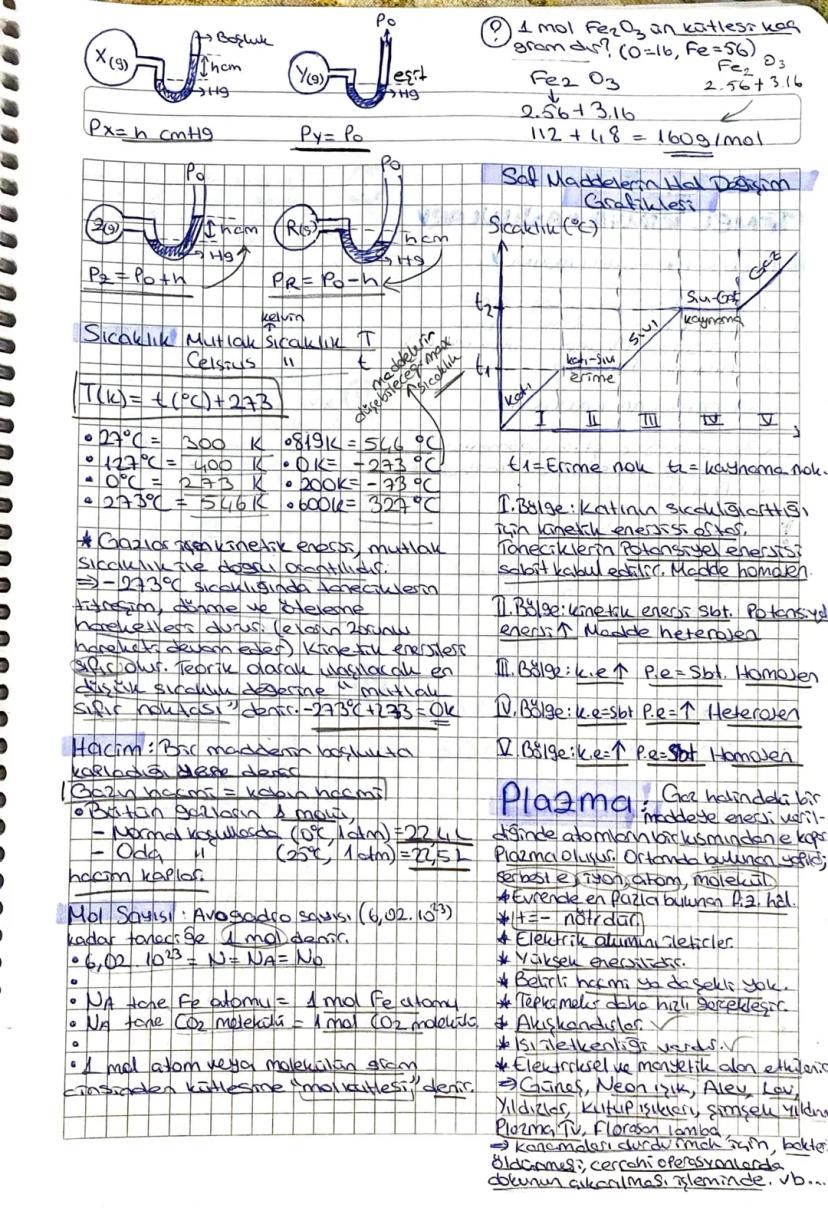 X(g)
Boşluk
hcm
Hg
Px= h cmHg
Po
Y(g)
eşit
Hg
Py= Po
? 1 mol Fe2O3 ün kütlesi kaç
gramdır? (O=16, Fe=56)
Fe2 O3
2.56+3.16
Fe2 O3
2.56+3.16
112 + 48 = 160g/mol
Po
Z(g)
hcm
Hg
Pz= Po+h
Po
R(g)
hcm
Hg
PR= Po-h
kelvin
Sıcaklık Mutlak Sıcaklık T
Celsius " t
maddelerin
düşebileceği max
sıcaklık
T(K)= t(°C)+273
• 27°C = 300 K •819K = 546 °C
• 127°C = 400 K • 0K= -273 °C
• 0°C = 273 K • 200K= -73 °C
• 273°C = 546 K •600K= 327 °C
* Gazlar için kinetik enerji, mutlak
sıcaklık ile doğru orantılıdır.
⇒ -273°C sıcaklığında taneciklerin
titreşim, dönme ve öteleme
hareketleri durur. (elasın zorunu
hareketi devam eder) Kinetik enerjileri
sıfır olur. Teorik olarak ulaşılacak en
düşük sıcaklık değerine "mutlak
sıfır noktası" denir. -273°C+273=0K
Hacim: Bir maddenin boşlukta
kapladığı yere denir
Gazın hacmi = kabın hacmi
• Bütün gazların 1 molü,
- Normal koşullarda (0°C, 1atm)=22,4L
- Oda " (25°C, 1atm)=22,5L
hacim kaplar.
Mol Sayısı: Avogadro sayısı (6,02.10²³)
kadar taneciğe 1 mol denir.
• 6,02.10²³ = N = NA = No
•
• NA tane Fe atomu = 1 mol Fe atomu
• NA tane CO2 molekülü = 1 mol CO2 molekülü
•
• 1 mol atom veya molekülün gram
cinsinden kütlesine "mol kütlesi" denir.
Saf Maddelerin Hal Değişim
Grafikleri
Sıcaklık (°C)
t2
t1
Katı
katı-sıvı
erime
Sıvı
Sıvı-Gaz
kaynama
Gaz
I II III IV V
t1=Erime nok t2= kaynama nok.
I.Bölge: Katının sıcaklığı arttığı
için kinetik enerjisi artar.
Taneciklerin Potansiyel enerjisi
sabit kabul edilir. Madde homojen.
II.Bölge: kinetik enerji sbt. Potansiyel
enerji↑ Madde heterojen
III.Bölge: k.e↑ P.e= Sbt. Homojen
IV.Bölge: k.e=sbt P.e=↑ Heterojen
V.Bölge: k.e=↑ P.e=Sbt Homojen
Plazma: Gaz halindeki bir
maddeye enerji veril-
diğinde atomların bir kısmından e kopar
Plazma oluşur. Ortamda bulunan yapılar;
serbest e, iyon, atom, molekül
* Evrende en fazla bulunan fiz. hal.
* += - nötrdür
* Elektrik akımını iletirler.
* Yüksek enerjilidir.
* Belirli hacmi ya da şekli yok.
* Tepkimeler daha hızlı gerçekleşir.
* Akışkandırlar. ✓
* Isı iletkenliği vardır. ✓
* Elektriksel ve manyetik alan etkilenir
⇒ Güneş, Neon ışık, Alev, Lav,
Yıldızlar, kutup ışıkları, şimşek yıldırım
Plazma TV, Florasan lamba
⇒ Kanamaları durdurmak için, bakteri
öldürmesi, cerrahi operasyonlarda
dokunun çıkarılması işleminde. vb...